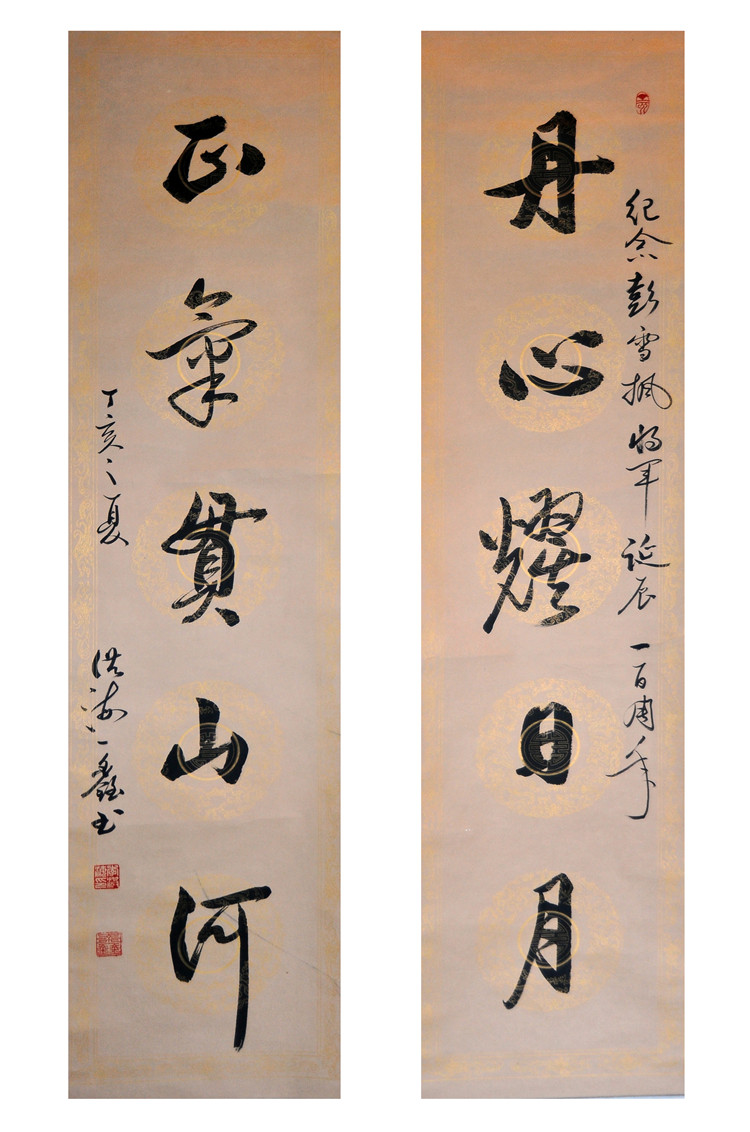 纪念彭雪枫将军诞辰一百周年
丹心耀日月
正氣貫山河
丁亥之夏
洪海一鑫书